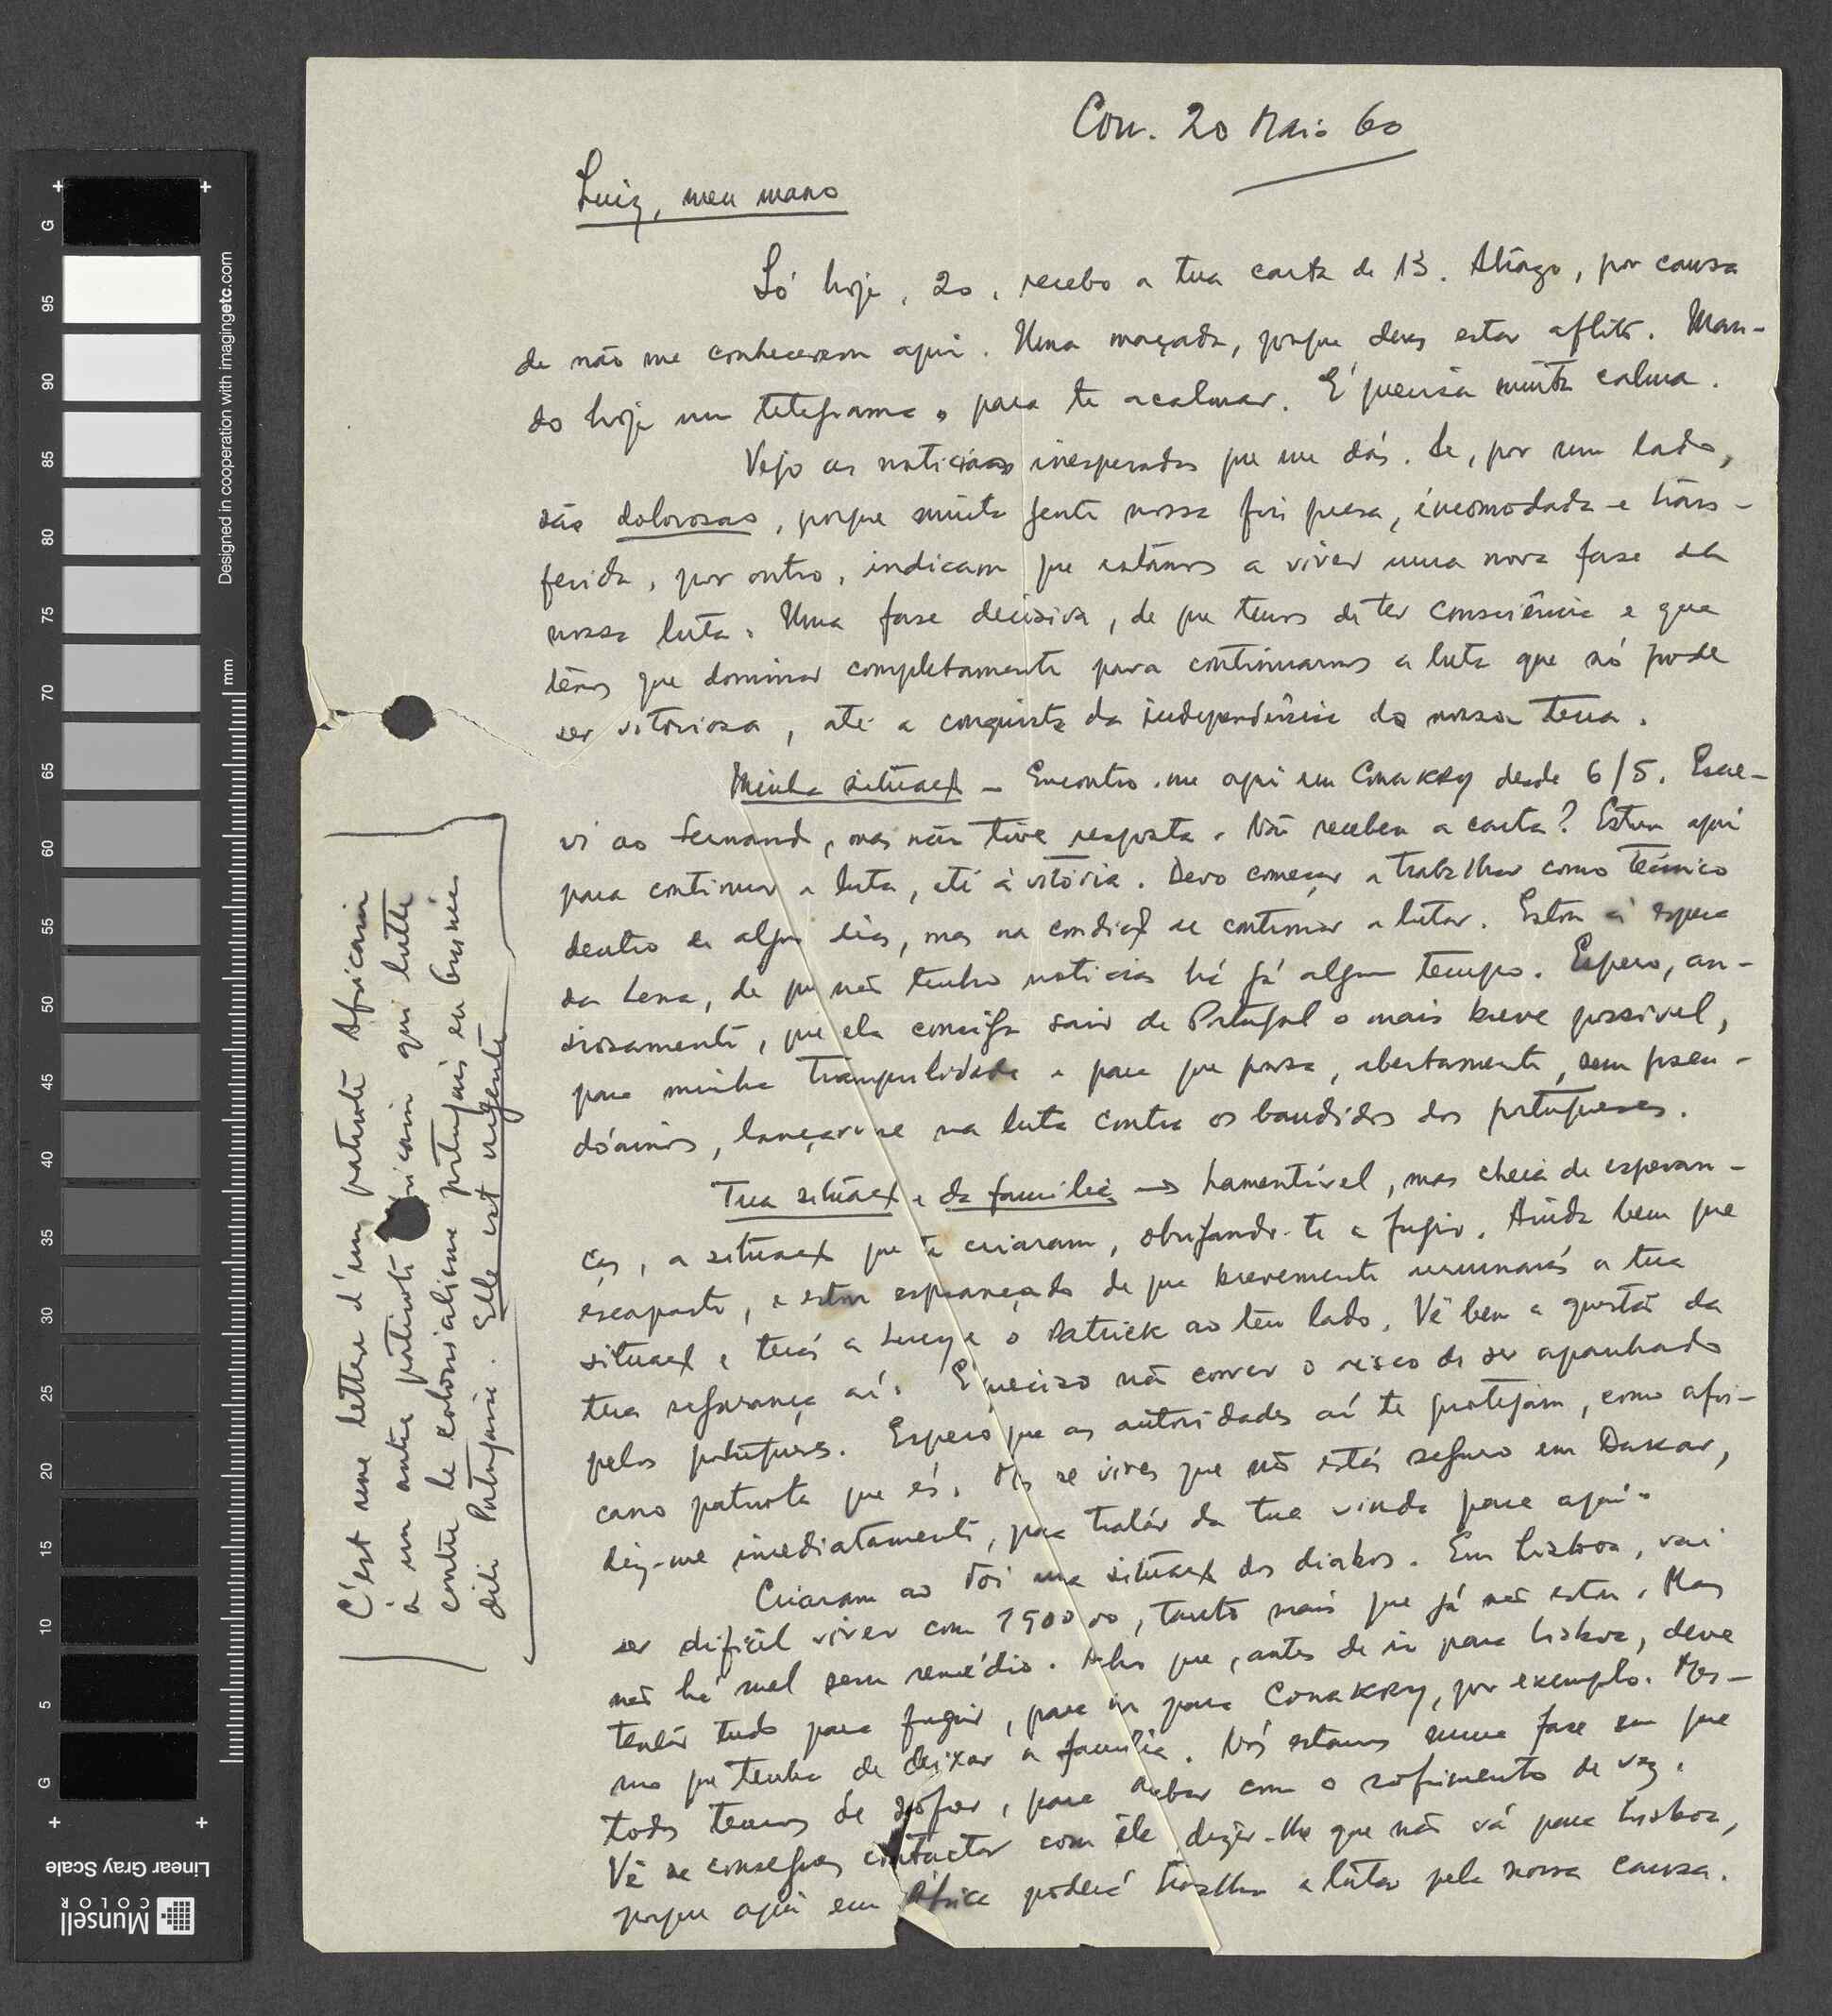 Con. 20 Maio 60
Luiz, meu mano
Só hoje, 20, recebo a tua carta de 13. Atrazo, por causa
de não me conhecerem aqui. Uma maçada, porque deves estar aflito. Man-
do hoje um telegrama, para te acalmar. É precisa muita calma.
Vejo as noticias inesperadas que me dás. Se, por um lado,
são dolorosas, porque muita gente nossa foi presa, incomodada e trans-
ferida, por outro, indicam que estamos a viver uma nova fase da
nossa luta. Uma fase decisiva, de que temos de ter consciência e que
temos que dominar completamente para continuarmos a luta que só pode
ser vitoriosa, até a conquista da independência da nossa terra.
Minha situaçã – Encontro-me aqui em Conakry desde 6/5. Escre-
vi ao Fernand, mas não tive resposta. Não recebeu a carta? Estou aqui
para continuar a luta, até à vitória. Devo começar a trabalhar como técnico
dentro de alguns dias, mas na condiçã de continuar a lutar. Estou à espera
da Lena, de que não tenho noticias há já algum tempo. Espero, an-
siosamente, que ela consiga sair de Portugal o mais breve possivel,
para minha tranquilidade e para que possa, abertamente, sem pseu-
dónimos, lançar-me na luta contra os bandidos dos portugueses.
Tua situaçã e da familia → Lamentável, mas cheia de esperan-
ças, a situaçã que te criaram, obrigando-te a fugir. Ainda bem que
escapaste, e estou esperançado de que brevemente arrumarás a tua
situaçã e terás a Lucy e o Patrick ao teu lado. Vê bem a questão da
tua segurança aí. É preciso não correr o risco de ser apanhado
pelos portugueses. Espero que as autoridades aí te protejam, como afri-
cano patriota que és. Mas se vires que não estás seguro em Dakar,
diz-me imediatamente, para tratar da tua vinda para aqui.
Criaram ao Tói uma situaçã dos diabos. Em Lisboa, vai
ser dificil viver com 1500 00, tanto mais que já não estou. Mas
não há mal sem remédio. Acho que, antes de ir para Lisboa, deve
tentar tudo para fugir, para ir para Conakry, por exemplo. Mes-
mo que tenha de deixar a familia. Nós estamos numa fase em que
todos temos de sofrer, para acabar com o sofrimento de vez.
Vê se consegues contactar com êle dizer-lhe que não vá para Lisboa,
porque aqui em África poderá trabalhar e lutar pela nossa causa.
C'est une lettre d'un patriote Africain
à un autre patriote Africain qui lutte
contre le colonialisme portugais en Guinée
dite Portugaise. Elle est urgente
G
95
90
85
80
75
70
65
60
55
50
45
40
35
30
25
20
15
10
5
G
mm
Designed in cooperation with imagingetc.com
Linear Gray Scale
Munsell
COLOR